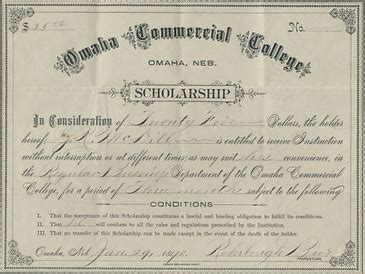 $ 35.00 No.
Omaha Commercial College
OMAHA, NEB.
SCHOLARSHIP
In Consideration of Twenty Five Dollars, the holder
hereof is entitled to receive Instruction
without interruption or at different times, as may suit his convenience, in
the Regular Business Department of the Omaha Commercial
College, for a period of Three months subject to the following
CONDITIONS
I. That the acceptance of this Scholarship constitutes a lawful and binding obligation to fulfill its conditions.
II. That he will conform to all the rules and regulations prescribed by the Institution.
III. That no transfer of this Scholarship can be made except in the event of the death of the holder.
Omaha, Neb. Jan Rohrbough Bros
PROPRIETORS.